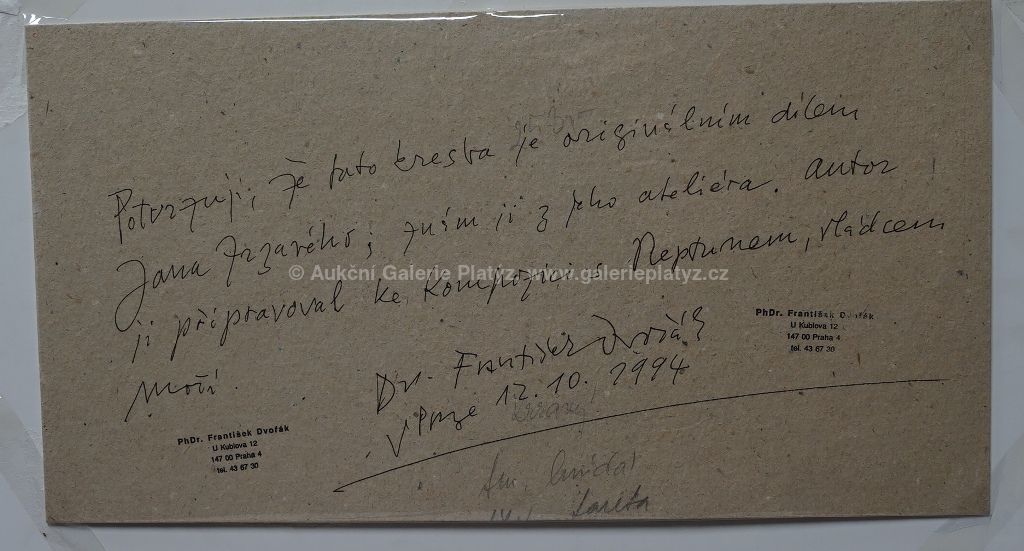 Potvrzuji, že tato kresba je originálním dílem
Jana Zrzavého; znám ji z jeho ateliéra. Autor
ji připravoval ke kompozici s Neptunem, vládcem
moří.
Dr. František Dvořák
V Praze 12. 10. 1994
© Aukční Galerie Platýz, www.galerieplatyz.cz
PhDr. František Dvořák
U Kublova 12
147 00 Praha 4
tel. 43 67 30
PhDr. František Dvořák
U Kublova 12
147 00 Praha 4
tel. 43 67 30